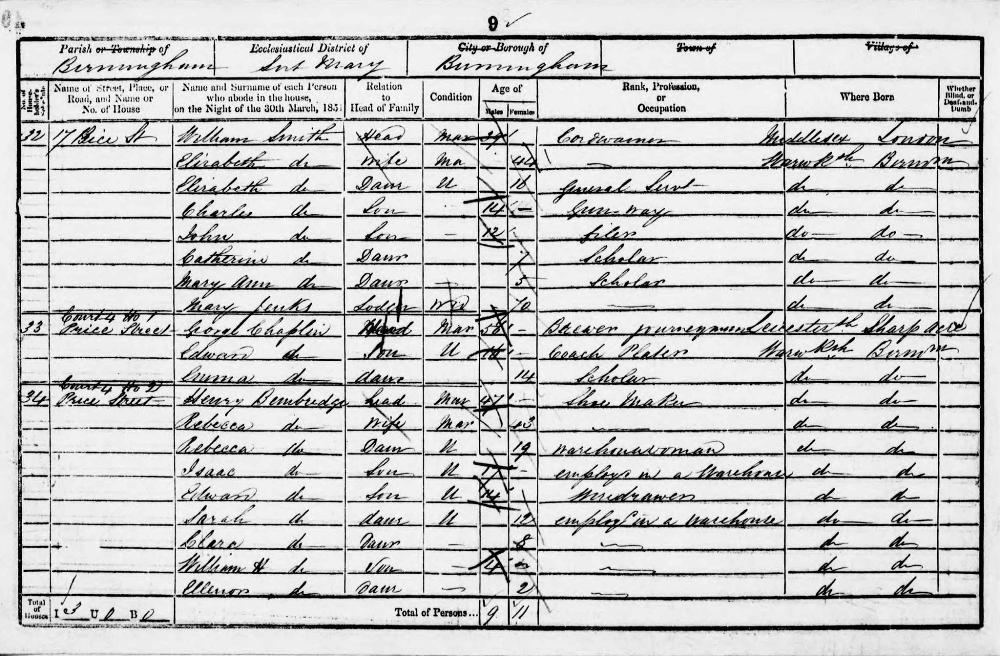 9
Parish or Township of Ecclesiastical District of City or Borough of Town of Village of
Birmingham Saint Mary Birmingham
No. of House-holder's Schedule Name of Street, Place, or Road, and Name or No. of House Name and Surname of each Person who abode in the house, on the Night of the 30th March, 1851 Relation to Head of Family Condition Age of Males Females Rank, Profession, or Occupation Where Born Whether Blind, or Deaf-and-Dumb
32 17 Price St William Smith Head Mar Cordwainer Middlesex London
Elizabeth do Wife Ma 44 Warwksh Birmm
Elizabeth do Daur U General Servt do do
Charles do Son 14 — Gun do do
John do Son — 12 Filer do do
Catherine do Daur 7 Scholar do do
Mary Ann do Daur — 5 Scholar do do
Mary Jenks Lodger Wid 70 — do do
Court 4 Ho 1
33 Price Street George Chaplin Head Mar 58 — Brewer journeyman Leicestersh
Edward do Son U — Coach Plater Warwksh Birmm
Emma do daur 14 Scholar do do
Court 4 Ho 2
34 Price Street Henry Bembridge Head Mar 47 — Shoe Maker do do
Rebecca do Wife Mar 43 — do do
Rebecca do Daur U 19 Warehousewoman do do
Isaac do Son U — employd in a Warehouse do do
Edward do Son U Wiredrawer do do
Sarah do daur U 12 employd in a Warehouse do do
Clara do Daur — 8 — do do
William H do Son — 4 — do do
Ellenor do Daur — 2 — do do
Total of Houses I 3 U 0 B 0 Total of Persons... 9 11